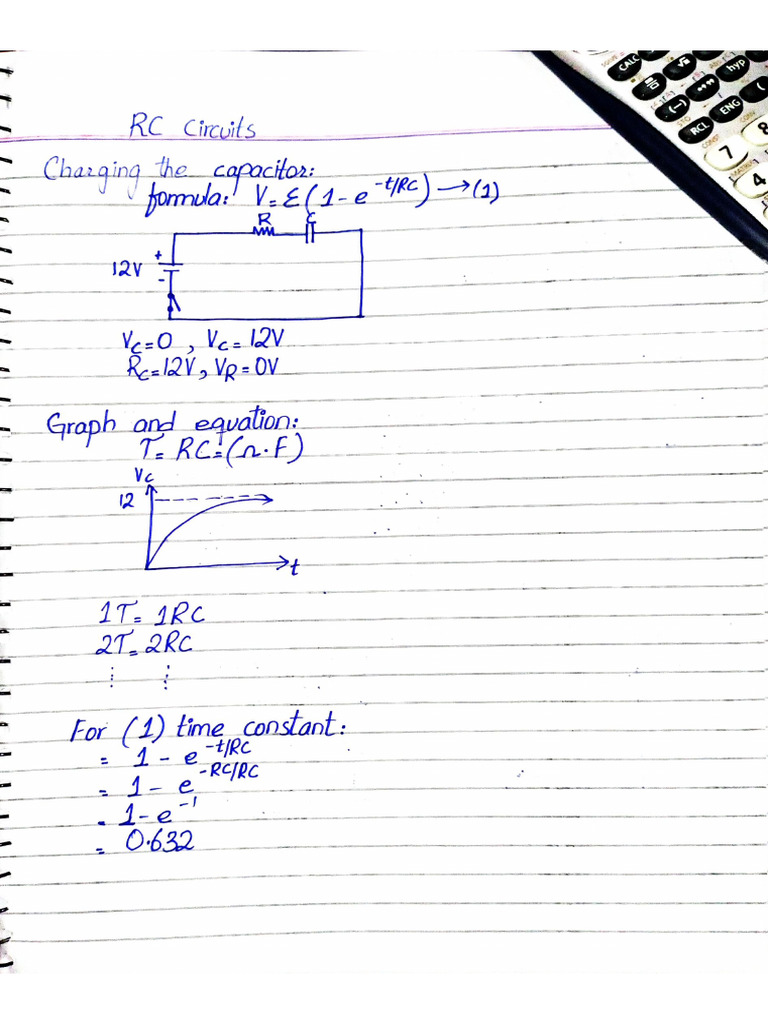 RC Circuits
Charging the capacitor:
formula: V = ε ( 1 - e^-t/RC ) → (1)
R C
+
12V
-
Vc = 0 , Vc = 12V
Rc = 12V , VR = 0V
Graph and equation:
τ = RC = (Ω·F)
Vc
12
t
1τ = 1RC
2τ = 2RC
⋮ ⋮
For (1) time constant:
= 1 - e^-t/RC
= 1 - e^-RC/RC
= 1 - e^-1
= 0.632
CALC
√x
hyp
(-)
° ' "
STO
RCL
ENG
(
CONST
CONV
7
8
MATRIX
4